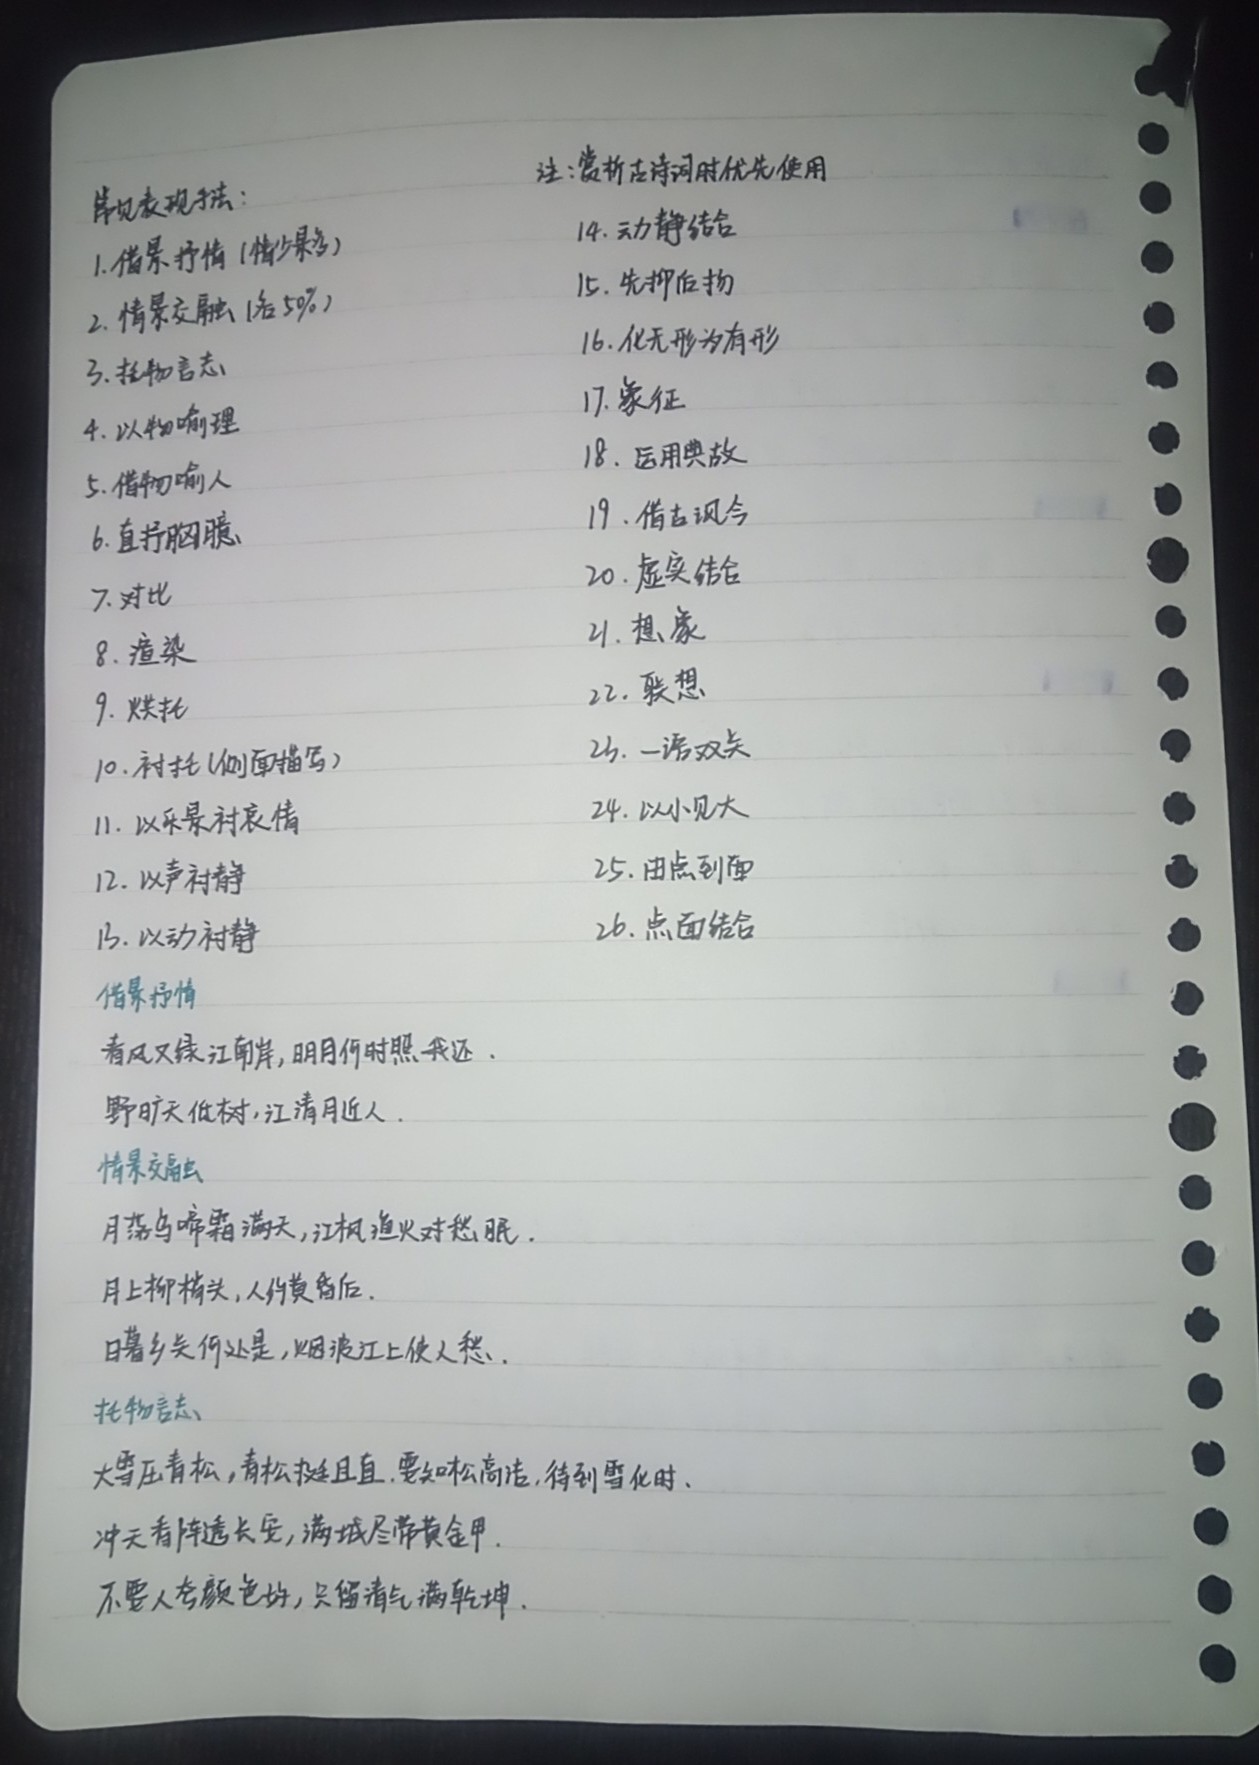 注:赏析古诗词时优先使用
常见表现手法:
1.借景抒情(情少景多)
2.情景交融(各50%)
3.托物言志
4.以物喻理
5.借物喻人
6.直抒胸臆
7.对比
8.渲染
9.烘托
10.衬托(侧面描写)
11.以乐景衬哀情
12.以声衬静
13.以动衬静
14.动静结合
15.先抑后扬
16.化无形为有形
17.象征
18.运用典故
19.借古讽今
20.虚实结合
21.想象
22.联想
23.一语双关
24.以小见大
25.由点到面
26.点面结合
借景抒情
春风又绿江南岸,明月何时照我还.
野旷天低树,江清月近人.
情景交融
月落乌啼霜满天,江枫渔火对愁眠.
月上柳梢头,人约黄昏后.
日暮乡关何处是,烟波江上使人愁.
托物言志
大雪压青松,青松挺且直.要知松高洁,待到雪化时.
冲天香阵透长安,满城尽带黄金甲.
不要人夸颜色好,只留清气满乾坤.